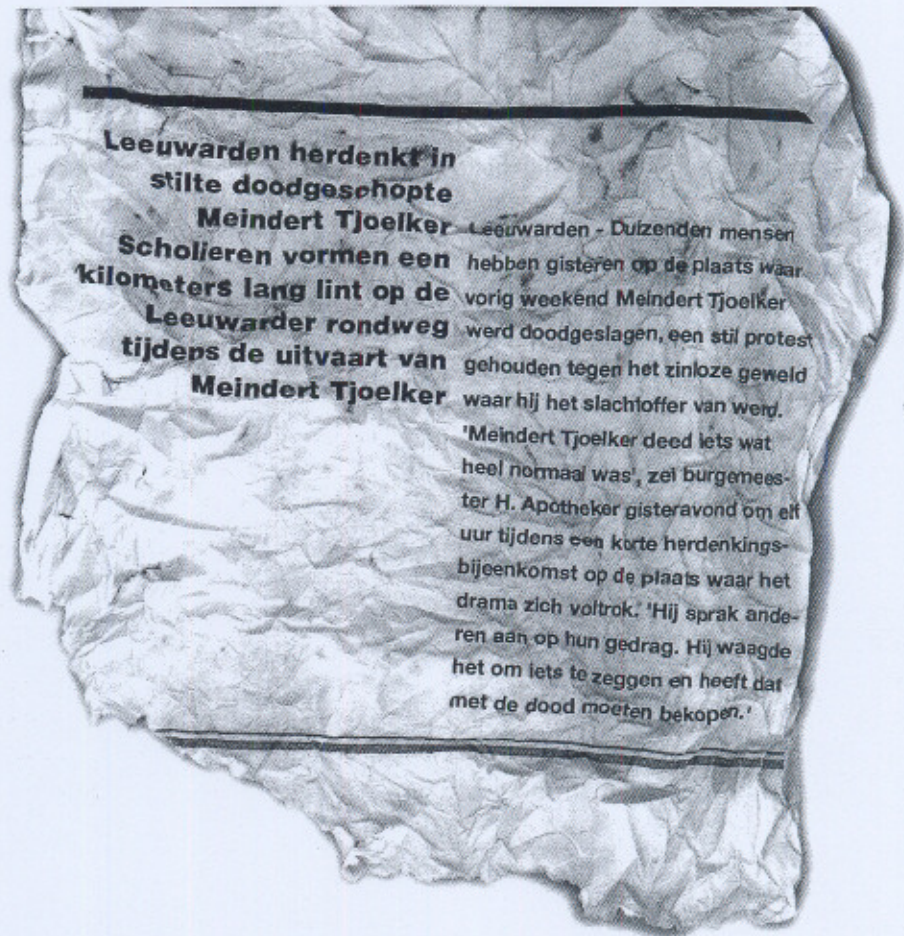 Leeuwarden herdenkt in
stilte doodgeschopte
Meindert Tjoelker
Scholieren vormen een
kilometers lang lint op de
Leeuwarder rondweg
tijdens de uitvaart van
Meindert Tjoelker
Leeuwarden - Duizenden mensen
hebben gisteren op de plaats waar
vorig weekend Meindert Tjoelker
werd doodgeslagen, een stil protest
gehouden tegen het zinloze geweld
waar hij het slachtoffer van werd.
'Meindert Tjoelker deed iets wat
heel normaal was', zei burgemees-
ter H. Apotheker gisteravond om elf
uur tijdens een korte herdenkings-
bijeenkomst op de plaats waar het
drama zich voltrok. 'Hij sprak ande-
ren aan op hun gedrag. Hij waagde
het om iets te zeggen en heeft dat
met de dood moeten bekopen.'